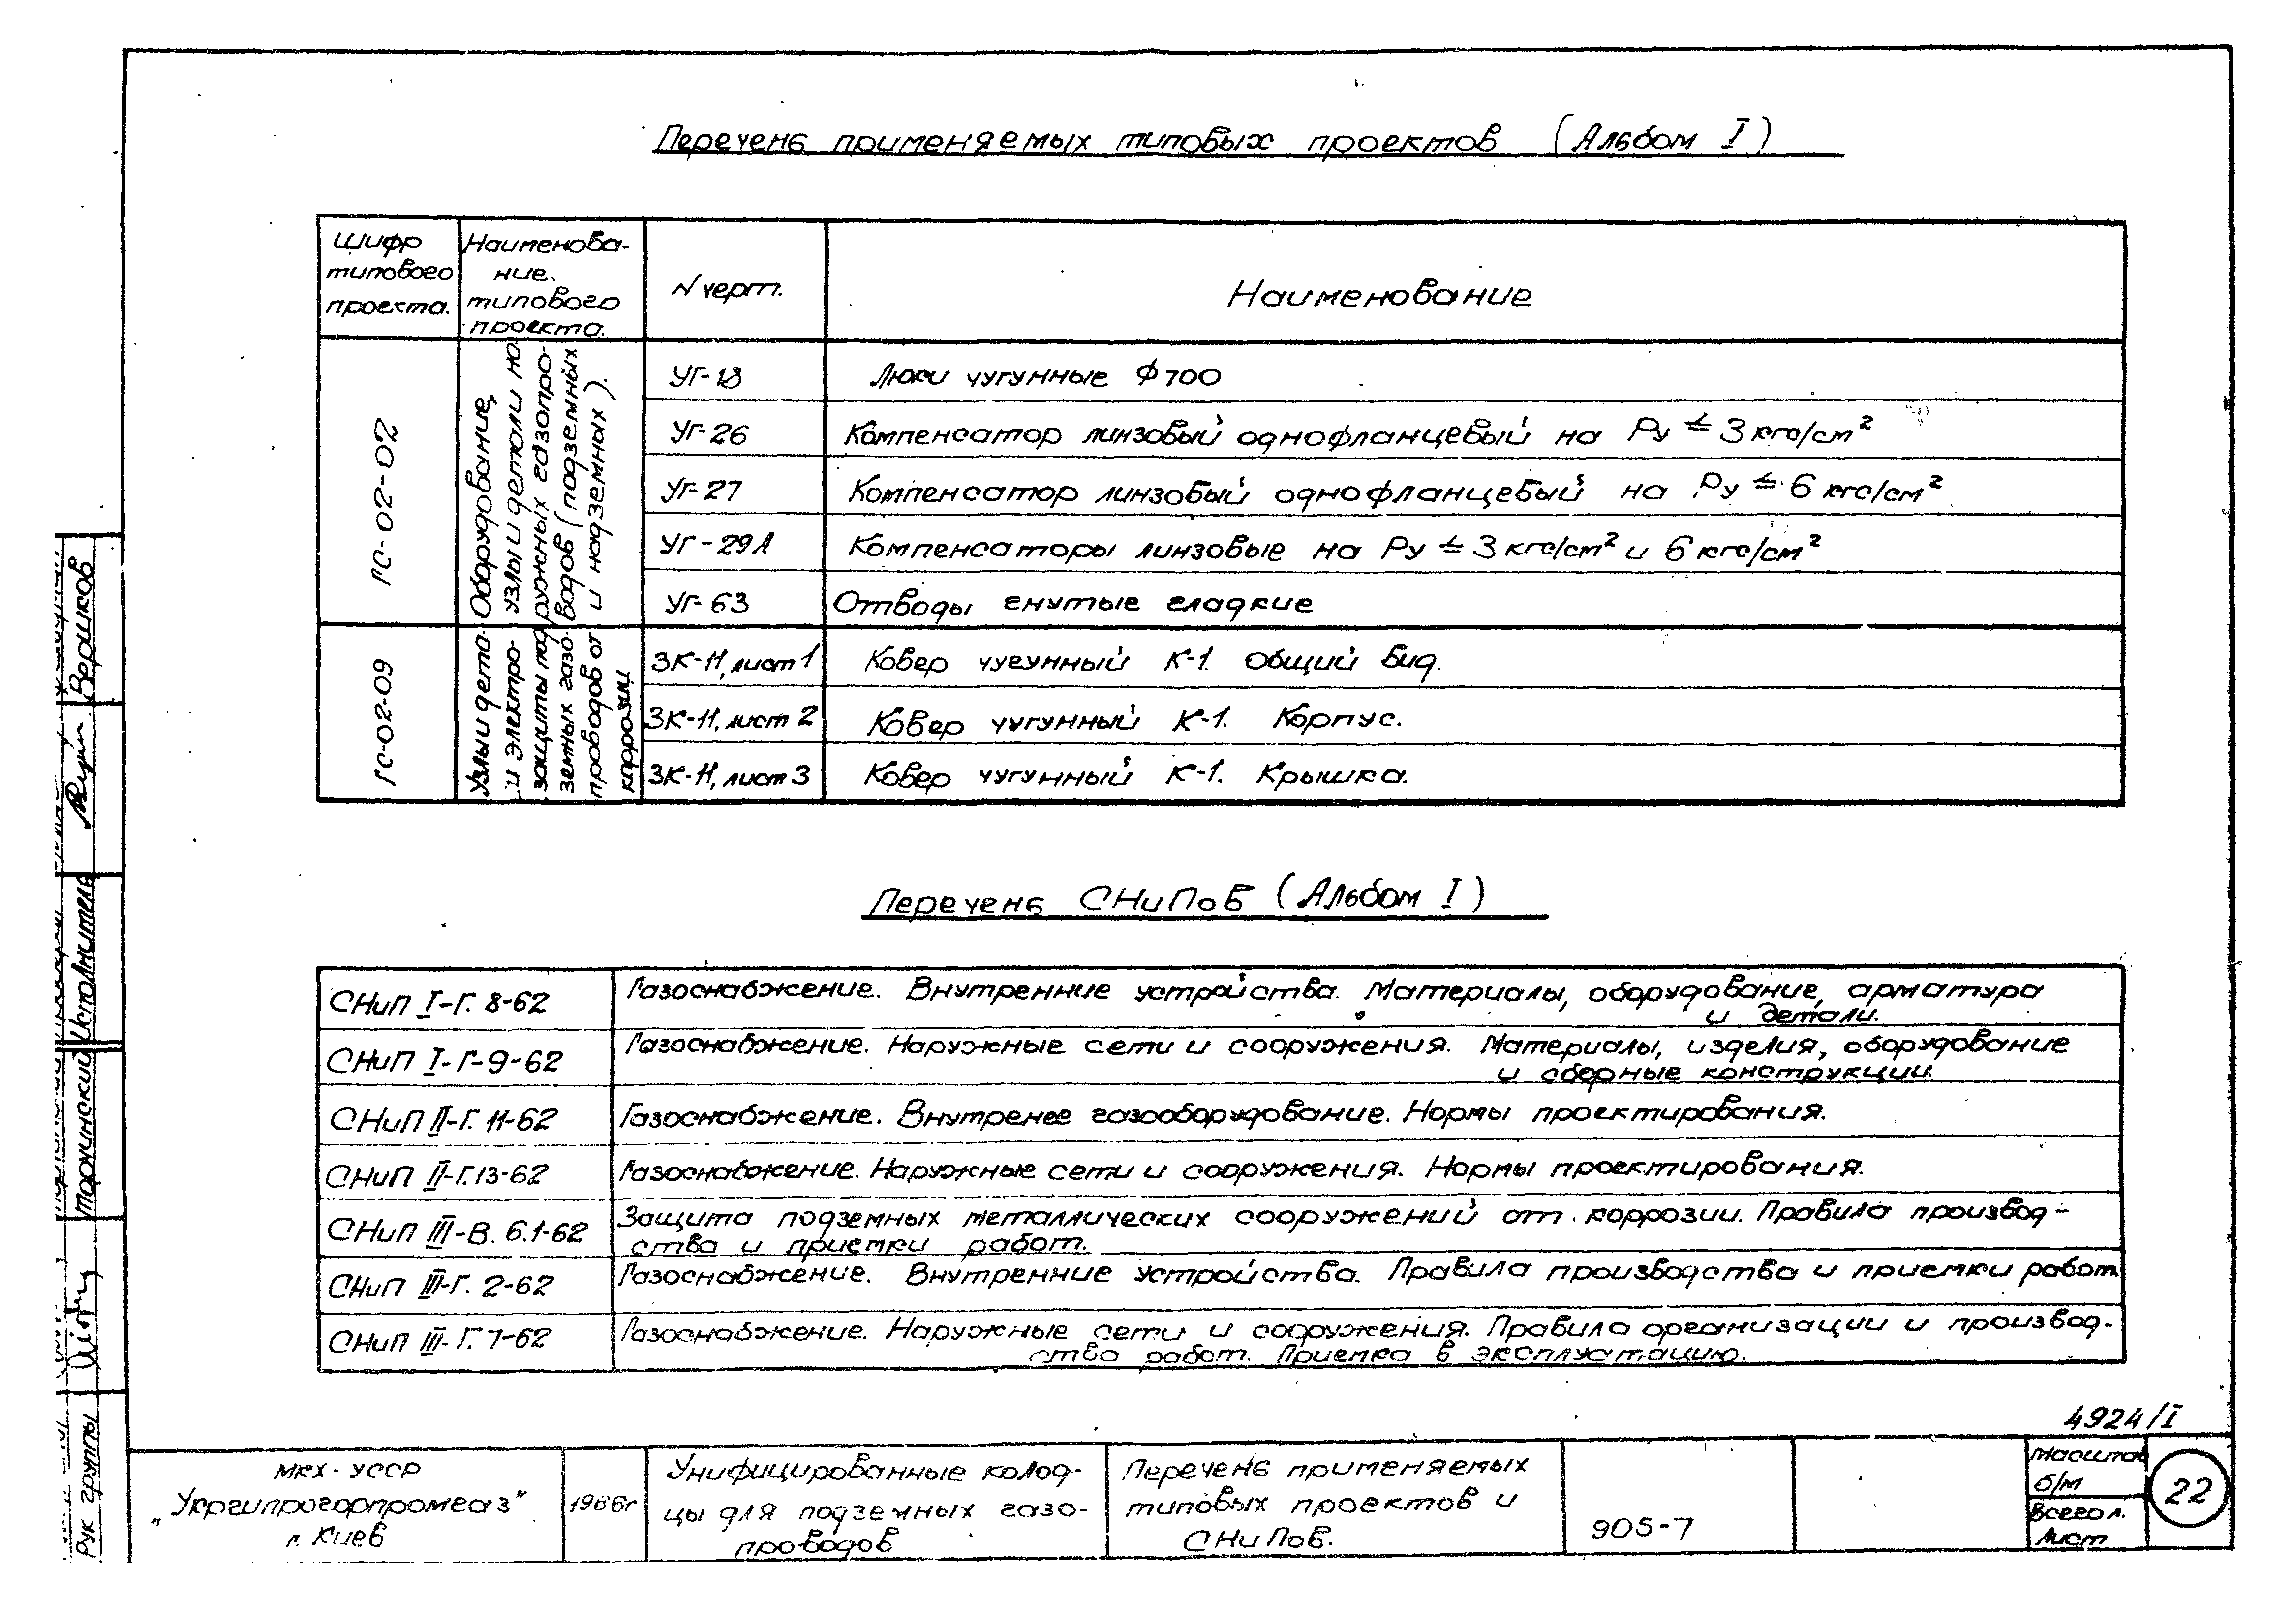 Перечень применяемых типовых проектов (Альбом I)
Шифр
типового
проекта.
Наименова-
ние
типового
проекта.
N черт.
Наименование
ГС-02-02
Оборудование,
узлы и детали на-
ружных газопро-
водов (подземных
и надземных).
УГ-18
Люки чугунные Ф700
УГ-26
Компенсатор линзовый однофланцевый на Ру ≤ 3 кгс/см²
УГ-27
Компенсатор линзовый однофланцевый на Ру ≤ 6 кгс/см²
УГ-29А
Компенсаторы линзовые на Ру ≤ 3 кгс/см² и 6 кгс/см²
УГ-63
Отводы гнутые гладкие
ГС-02-09
Узлы и дета-
и электро-
защиты под
земных газо-
проводов от
коррозии
ЗК-11, лист 1
Ковер чугунный К-1. Общий вид.
ЗК-11, лист 2
Ковер чугунный К-1. Корпус.
ЗК-11, лист 3
Ковер чугунный К-1. Крышка.
Перечень СНиПов (Альбом I)
СНиП I-Г. 8-62
Газоснабжение. Внутренние устройства. Материалы, оборудование, арматура
и детали.
СНиП I-Г-9-62
Газоснабжение. Наружные сети и сооружения. Материалы, изделия, оборудование
и сборные конструкции.
СНиП II-Г. 11-62
Газоснабжение. Внутренее газооборудование. Нормы проектирования.
СНиП II-Г. 13-62
Газоснабжение. Наружные сети и сооружения. Нормы проектирования.
СНиП III-В. 6.1-62
Защита подземных металлических сооружений от коррозии. Правила производ-
ства и приемки работ.
СНиП III-Г. 2-62
Газоснабжение. Внутренние устройства. Правила производства и приемки работ.
СНиП III-Г. 7-62
Газоснабжение. Наружные сети и сооружения. Правила организации и производ-
ства работ. Приемка в эксплуатацию.
4924/I
МКХ-УССР
„Укргипрогорпромгаз"
г. Киев
1966г
Унифицированные колод-
цы для подземных газо-
проводов
Перечень применяемых
типовых проектов и
СНиПов.
905-7
Масштаб
б/м
Всего л.
Лист
22
Вершков
Исполнитель
Рук группы